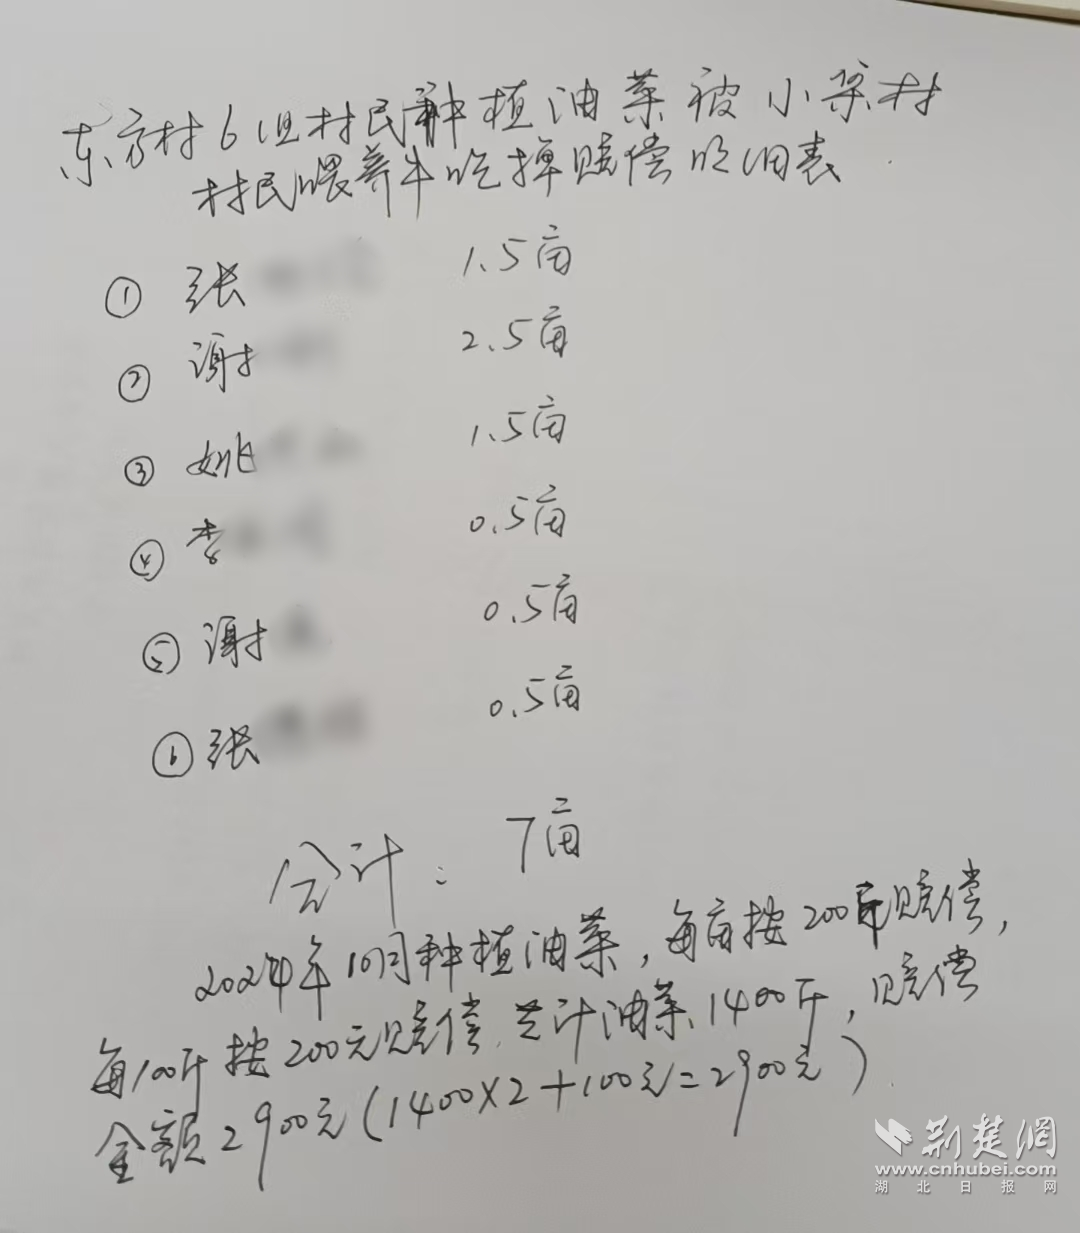 东方村6组村民种植油菜被小梁村
村民喂养牛吃掉赔偿明细表
① 张 1.5亩
② 谢 2.5亩
③ 姚 1.5亩
④ 李 0.5亩
⑤ 谢 0.5亩
⑥ 张 0.5亩
合计: 7亩
2024年10月种植油菜,每亩按200斤赔偿,
每100斤按200元赔偿.共计油菜1400斤,赔偿
金额2900元(1400×2+100元=2900元)
荆楚网
www.cnhubei.com
湖北日报网